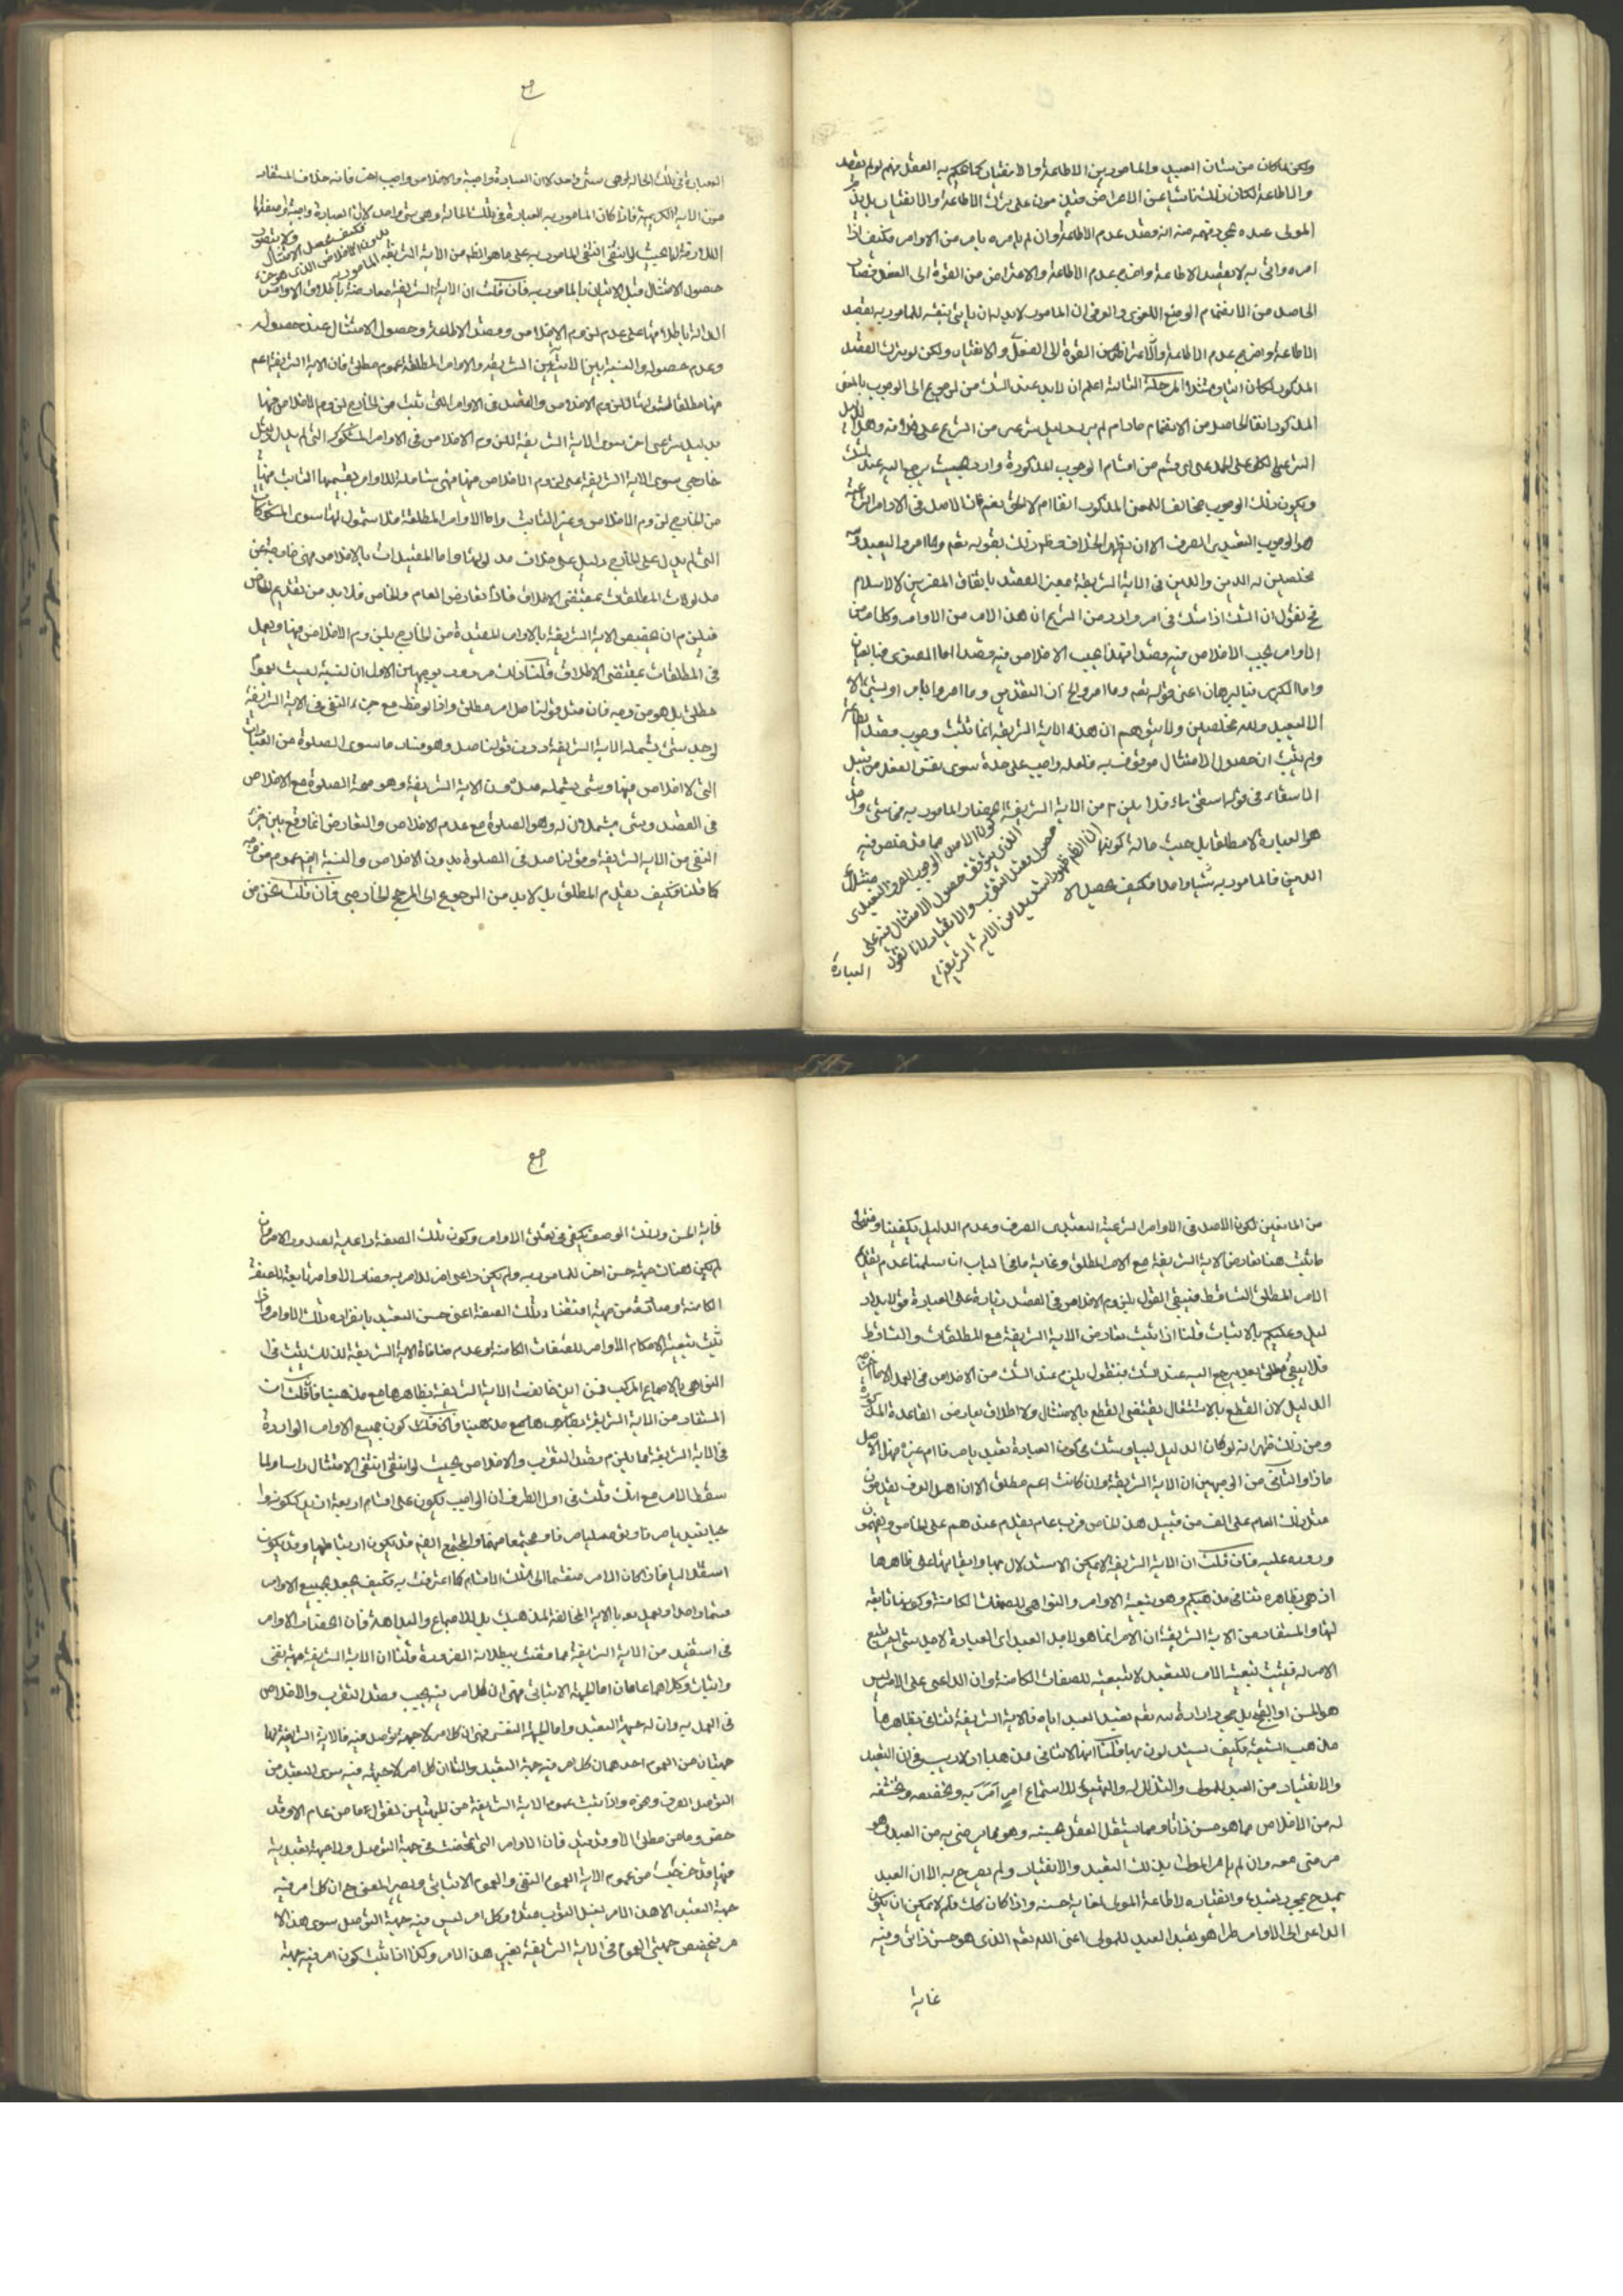 ولكن لما كان من شان العبيد والمامورين الاطاعة والانقياد كما يحكم به العقل فهم لو لم يقصد
والاطاعة لكان ذلك ناشيا عن الاعراض
المولى عبده بمجرد فهمه منه انه قصد عدم الاطاعة وان لم يامره بامر من الاوامر فكيف اذا
امره واتى به لا بقصد الاطاعة واخرج عدم الاطاعة والاعراض من القوة الى الفعل
الحاصل من الانضمام الوضع اللغوى والعرفى ان المامور لا بد له ان ياتى بنفسه للمامور به بقصد
الاطاعة واخرج عدم الاطاعة والاعراض من القوة الى الفعل والانقياد ولكن لو ترك القصد
المذكور لكان المرحلة الثالثة اعلم ان لا بد عند الشك من الرجوع الى الوجوب بالمعنى
المذكور انفا الحاصل من الانضمام ما دام لم يرد دليل شرعى من الشرع على خلافه
الشرعى على الحمل على اى قسم من اقسام الوجوب المذكورة وارد بحيث يرجع اليه عند الشك
ويكون ذلك الوجوب مخالفا للمعنى المذكور انفا ام لا الحق نعم فان الاصل فى الاوامر الشرعية
هو الوجوب التعبدى الصرف الا ان يظهر الخلاف وظهر ذلك بقوله تعم وما امروا الا ليعبدوا الله
مخلصين له الدين والدين فى الاية الشريفة بمعنى القصد باتفاق المفسرين لا الاسلام
نقول ان الشك اذا شك فى امر وارد من الشرع ان هذا الامر من الاوامر وكلما من
الاوامر يجب الاخلاص فيه وقصد فهذا يجب الاخلاص فيه وقصد اما الصغرى فبالعيان
واما الكبرى فبالبرهان اعنى قوله تعم وما امروا الخ اذ التقدير وما امروا بامر او بشئ
الا ليعبدوا الله مخلصين ولا يتوهم ان هذه الاية الشريفة انما تثبت وجوب قصد الاطاعة
ولم يثبت ان حصول الامتثال موقوف فيه فلعله واجب على حدة سوى نفس الفعل من قبيل
فى قوله من الاية الشريفة انحصار المامور به فى شئ واحد
هو العبادة لا مطلقا بل حيث حالة كونها مما قد خلص فيه
الدين فالمامور به شيئا واحدا فكيف يحصل الا
كون الاصل الوجوب الصرف التعبدى
الذى يتوقف حصول الامتثال فيه على
حصول قصد التقرب والانقياد لانا نقول
ان الظهور استفيد من الاية الشريفة
العبادة
العبادة فى تلك الحالة لو هى شئ واحد لا ان العبادة واجبة والاخلاص واجب اخر فانه خلاف المستفاد
من الاية الكريمة فاذا كان المامور به العبادة فى تلك الحالة وهى شئ واحد لا ان العبادة واجبة وصفتها
اللازمة لها بحيث لو انتفى انتفى المامور به على ما هو الظاهر من الاية الشريفة
فكيف يحصل الامتثال
بدون الاخلاص الذى هو جزء
المامور به
حصول الامتثال قبل الاتيان بالمامور به فان قلت ان الاية الشريفة معارضة باطلاق الاوامر
الدالة باطلاقها على عدم لزوم الاخلاص وقصد الاطاعة وحصول الامتثال عند حصوله
وعدم حصوله والنسبة بين الاية الشريفة والاوامر المطلقة عموم مطلق فان الاية الشريفة اعم
منها مطلقا لشمولها للزوم الاخلاص والقصد فى الاوامر التى ثبت من الخارج لزوم الاخلاص فيها
بدليل شرعى اخر سوى الاية الشريفة للزوم الاخلاص فى الاوامر المشكوك التى لم يدل دليل
خارجى سوى الاية الشريفة على لزوم الاخلاص فيها فهى شاملة للاوامر بقسميها الثابت فيها
من الخارج لزوم الاخلاص وغير الثابت واما الاوامر المطلقة فلا شمول لها سوى المشكوكات
التى لم يدل على الخارج دليل على خلاف مدلولها واما المقيدات بالاخلاص فهى خارجة عن
مدلولات المطلقات بمقتضى الاطلاق فاذا تعارض العام والخاص فلا بد من تقديم الخاص
فيلزم ان تخصيص الاية الشريفة بالاوامر المقيدة من الخارج بلزوم الاخلاص فيها ويعمل
فى المطلقات بمقتضى الاطلاق قلنا ذلك مردود بوجهين الاول ان النسبة ليست عموم
مطلق بل هو من وجه فان مثل قولنا صل امر مطلق واذا لوحظ مع جزء النفى فى الاية الشريفة
لوجد شئ يشمله الاية الشريفة دون قولنا صل وهو فساد ما سوى الصلوة من العبادات
التى لا اخلاص فيها وشئ يشمله صل دون الاية الشريفة وهو صحة الصلوة مع الاخلاص
فى القصد وشئ يشملان له وهو الصلوة مع عدم الاخلاص والتعارض انما وقع بين جزء
النفى من الاية الشريفة وقولنا صل فى الصلوة بدون الاخلاص والنسبة ايضا عموم من وجه
كما قلنا فكيف يقدم المطلق بل لا بد من الرجوع الى المرجح الخارجى فان قلت نحن من
من المانعين لكون الاصل فى الاوامر الشرعية التعبدى الصرف وعدم الدليل يكفينا
ما يثبت هنا تعارض الاية الشريفة مع الامر المطلق وغاية ما فى الباب ان سلمنا عدم تقديم
الامر المطلق التساقط فيبقى القول بلزوم الاخلاص فى القصد زيادة على العبادة قولا بلا
دليل وعليكم بالاثبات قلنا اذا ثبت تعارض الاية الشريفة مع المطلقات والتساقط
فلا يبقى مطلق بعد يرجع اليه عند الشك فنقول يلزم عند الشك من الاخلاص فى العمل
الدليل لان القطع بالاشتغال يقتضى القطع بالامتثال ولا اطلاق يعارض القاعدة المذكورة
ومن ذلك ظهر انه لو كان الدليل لبيا وشك فى كون العبادة تعبديا صرفا ام غيره فهل الاصل
ماذا والثانى من الوجهين ان الاية الشريفة وان كانت اعم مطلق الا ان اهل العرف يقدمون
مثل ذلك العام على الف من قبيل هذا الخاص فرب عام يقدم عندهم على الخاص
وروده عليه فان قلت ان الاية الشريفة لا يمكن الاستدلال بها وابقائها على ظاهرها
اذ هى بظاهره تنافى مذهبكم وهو تبعية الاوامر والنواهى للصفات الكامنة وكونها تابعة
لها والمستفاد من الاية الشريفة ان الامر انما هو لاجل التعبد اى العبادة لاجل شئ اخر يتبع
الامر له فيثبت تبعية الامر للتعبد لا تبعيته للصفات الكامنة وان الداعى على الامر ليس
هو الحسن او القبح بل مجرد ارادة الله تعم تعبد العبد اياه فالاية الشريفة تنافى بظاهرها
مذهب الشيعة فكيف يستدلون بها قلنا انها لا تنافى مذهبنا اذ لا ريب فى ان التعبد
والانقياد من العبد للمولى والتذلل له والتهيؤ لاستماع امر امر به
له من الاخلاص مما هو حسن ذاتا ومما يستقل العقل بحسنه وهو مما يرضى به من العبد وهو
مرضى معه وان لم يامر المولى بذلك التعبد والانقياد ولم يصرح به الا ان العبد
يمدح بمجرد تعبده وانقياده لاطاعة المولى لغاية حسنه واذا كان كذلك فلم لا يمكن ان يكون
الداعى الى الاوامر طرا هو تعبد العبد للمولى اعنى الله تعم الذى هو حسن ذاتى وفيه
غاية
غاية الحسن وذلك الوصف يكفى فى تعلق الاوامر وكون تلك الصفة داعية لصدور الامر وان
لم يكن هناك جهة حسن اخر للمامور به ولم يكن داعى اخر للامر به فصار الاوامر تابعة للصفة
الكامنة من جهة اقتضاء ذلك الصفة اعنى حسن التعبد بانفراده ذلك الاوامر
ثبت تبعية الاحكام الاوامر للصفات الكامنة وعدم منافاة الاية الشريفة لذلك ثبت فى
النواهى بالاجماع المركب فمن اين خالفت الاية الشريفة بظاهرها مع مذهبنا فان قلت ان
المستفاد من الاية الشريفة بظاهرها مع مذهبنا كون جميع الاوامر الواردة
فى الاية الشريفة مما يلزم قصد التقرب والاخلاص بحيث لو انتفى انتفى الامتثال راسا ولما
سقط الامر مع انك قلت فى اول الطرف ان الواجب يكون على اقسام اربعة
تعبديا صرفا وتوصليا صرفا ومجتمعا منهما والمجتمع ايضا قد يكون ارتباطيا وقد يكون
استقلاليا فاذا كان الامر منقسما الى تلك الاقسام كما اعترفت به فكيف يجعل جميع الاوامر
قسما واحدا ويعمل بالاية المخالفة لمذهبك بل للاجماع والبداهة فان انحصار الاوامر
فى استفيد من الاية الشريفة مما قضت ببطلانه الضرورة قلنا ان الاية الشريفة جهة نفى
واثبات وكلاهما عامان اما الجهة الاثباتى فهى ان كل امر فيه يجب قصد التقرب والاخلاص
فى العمل به وان له جهة التعبد واما الجهة النفى فهى ان كل امر لا جهة توصل فيه فالاية الشريفة لها
جهتان من العموم احدهما ان كل امر فيه جهة التعبد والثانى ان كل امر لا جهة فيه سوى التعبد من
التوصل الصرف وغيره واذا ثبت عموم الاية الشريفة من الجهتين نقول ما من عام الا وقد
خص وما من مطلق الا وقد قيد فان الاوامر التى تمحضت فى جهة التوصل ولا جهة تعبد فيه
فيها قد خرجت من عموم الاية العموم النفى والعموم الاثباتى ويصير المعنى ح ان كل امر فيه
جهة التعبد الا هذا الامر وكل امر ليس فيه جهة التوصل سوى هذا الا
مر فيخصص جهتى العموم فى الاية الشريفة بغير هذا الامر وكذا اذا ثبت كون امر فيه جهة